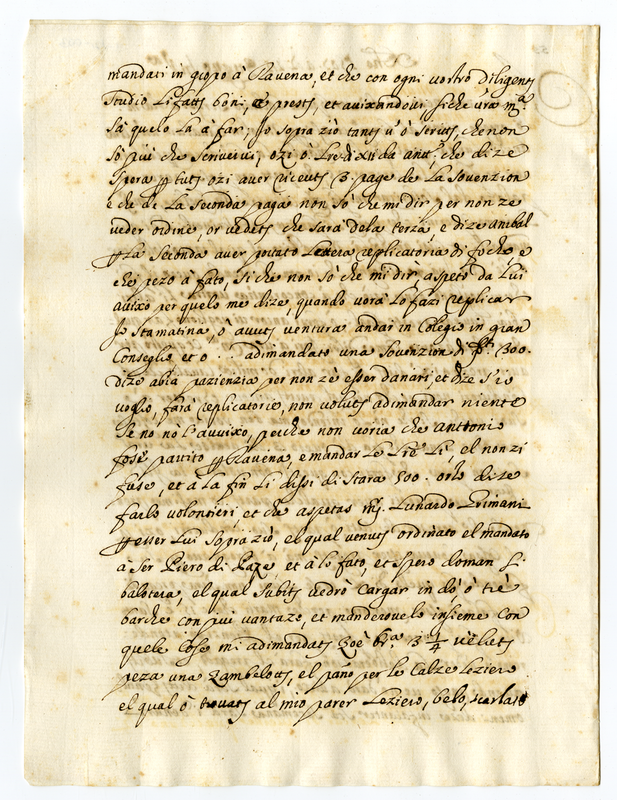 mandati in gropo à Ravena, et che con ogni vostro diligente
studio li fatte boni, e presti, et avixandovi, siche v̅ra m.ᵃ
sà quelo la à far; Jo sopra ziò tante v' ò scritte, che non
sò più che scrivervi, ozi ò l̅re di xii da che dize
spera ꝑ tuto ozi aver ricevute 3. page de la sovenzion
e che de la seconda paga non sò che mi dir per non ze
veder ordine, or vedete che sarà dela terza, e dize
ꝑ la seconda aver portato lettera replicatoria di fuche, e
che pezo à fato, siche non sò che mi dir aspeto da lui
avixo per quelo me dize, quando vorà lo fazi replicar
Jo stamatina, ò avuto ventura andar in Colegio in gran
Conseglio et ò . . adimandato una sovenzion di 300.
dize abia pazienzia per non zè esser danari, et dize s'io
voglio, farà replicatorie, non volute adimandar niente
se no nò l'avvixo, perche non voria che Antonio
fose partito ꝑ Ravena, e mandar le lì, el non zi
fuse, et à la fin li dissi di stara 500. orzo dize
farlo volontieri, et che aspetas m̅s. Lunardo Grimani
ꝑ esser lui sopra ziò, el qual venuto ordinato el mandato
à ser Piero di Paze, et à lo fato, et spero doman si
baloterà, el qual subito vedrò cargar in dò ò trè
barche con più vantazo, et manderovelo insieme con
quele cose mi adimandate zoè br.ᵃ 3 1/4 veluto
peza una zambeloto, el pano per le calze leziero
el qual ò trovato al mio parer leziero, belo, scarlato